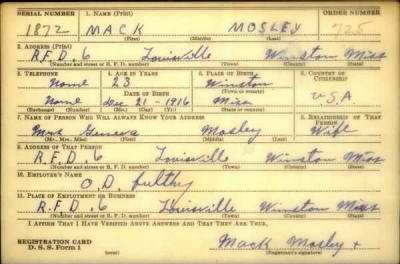 SERIAL NUMBER 1. NAME (Print) ORDER NUMBER
1872 MACK MOSLEY 725
(First) (Middle) (Last)
2. ADDRESS (Print)
R.F.D. 6 Louisville Winston Miss
(Number and street or R. F. D. number) (Town) (County) (State)
3. TELEPHONE 4. AGE IN YEARS 5. PLACE OF BIRTH 6. COUNTRY OF CITIZENSHIP
None 23 Winston
DATE OF BIRTH (Town or county)
None Dec 21-1916 Miss U.S.A
(Exchange) (Number) (Mo.) (Day) (Yr.) (State or country)
7. NAME OF PERSON WHO WILL ALWAYS KNOW YOUR ADDRESS 8. RELATIONSHIP OF THAT PERSON
Mrs Geneva Mosley Wife
(Mr., Mrs., Miss) (First) (Middle) (Last)
9. ADDRESS OF THAT PERSON
R.F.D. 6 Louisville Winston Miss
(Number and street or R. F. D. number) (Town) (County) (State)
10. EMPLOYER'S NAME
O.D.
11. PLACE OF EMPLOYMENT OR BUSINESS
R.F.D. 6 Louisville Winston Miss
(Number and street or R. F. D. number) (Town) (County) (State)
I AFFIRM THAT I HAVE VERIFIED ABOVE ANSWERS AND THAT THEY ARE TRUE.
REGISTRATION CARD
D. S. S. Form 1 Mack Mosley +
(Registrant's signature)